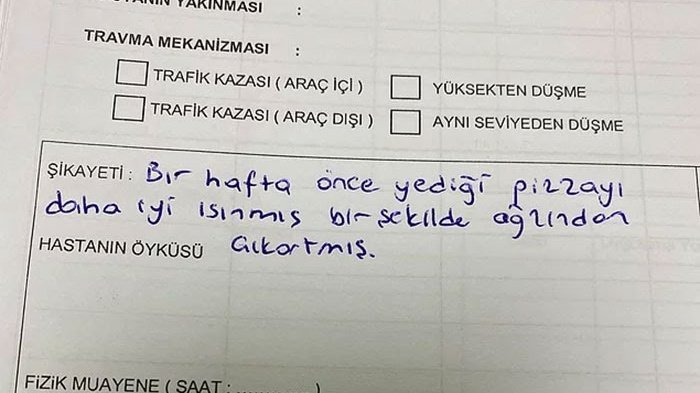 HASTANIN YAKINMASI :
TRAVMA MEKANİZMASI :
TRAFİK KAZASI ( ARAÇ İÇİ ) YÜKSEKTEN DÜŞME
TRAFİK KAZASI ( ARAÇ DIŞI ) AYNI SEVİYEDEN DÜŞME
ŞİKAYETİ : Bir hafta önce yediği pizzayı
daha iyi ısınmış bir şekilde ağzından
HASTANIN ÖYKÜSÜ çıkartmış.
FİZİK MUAYENE ( SAAT : ............ )